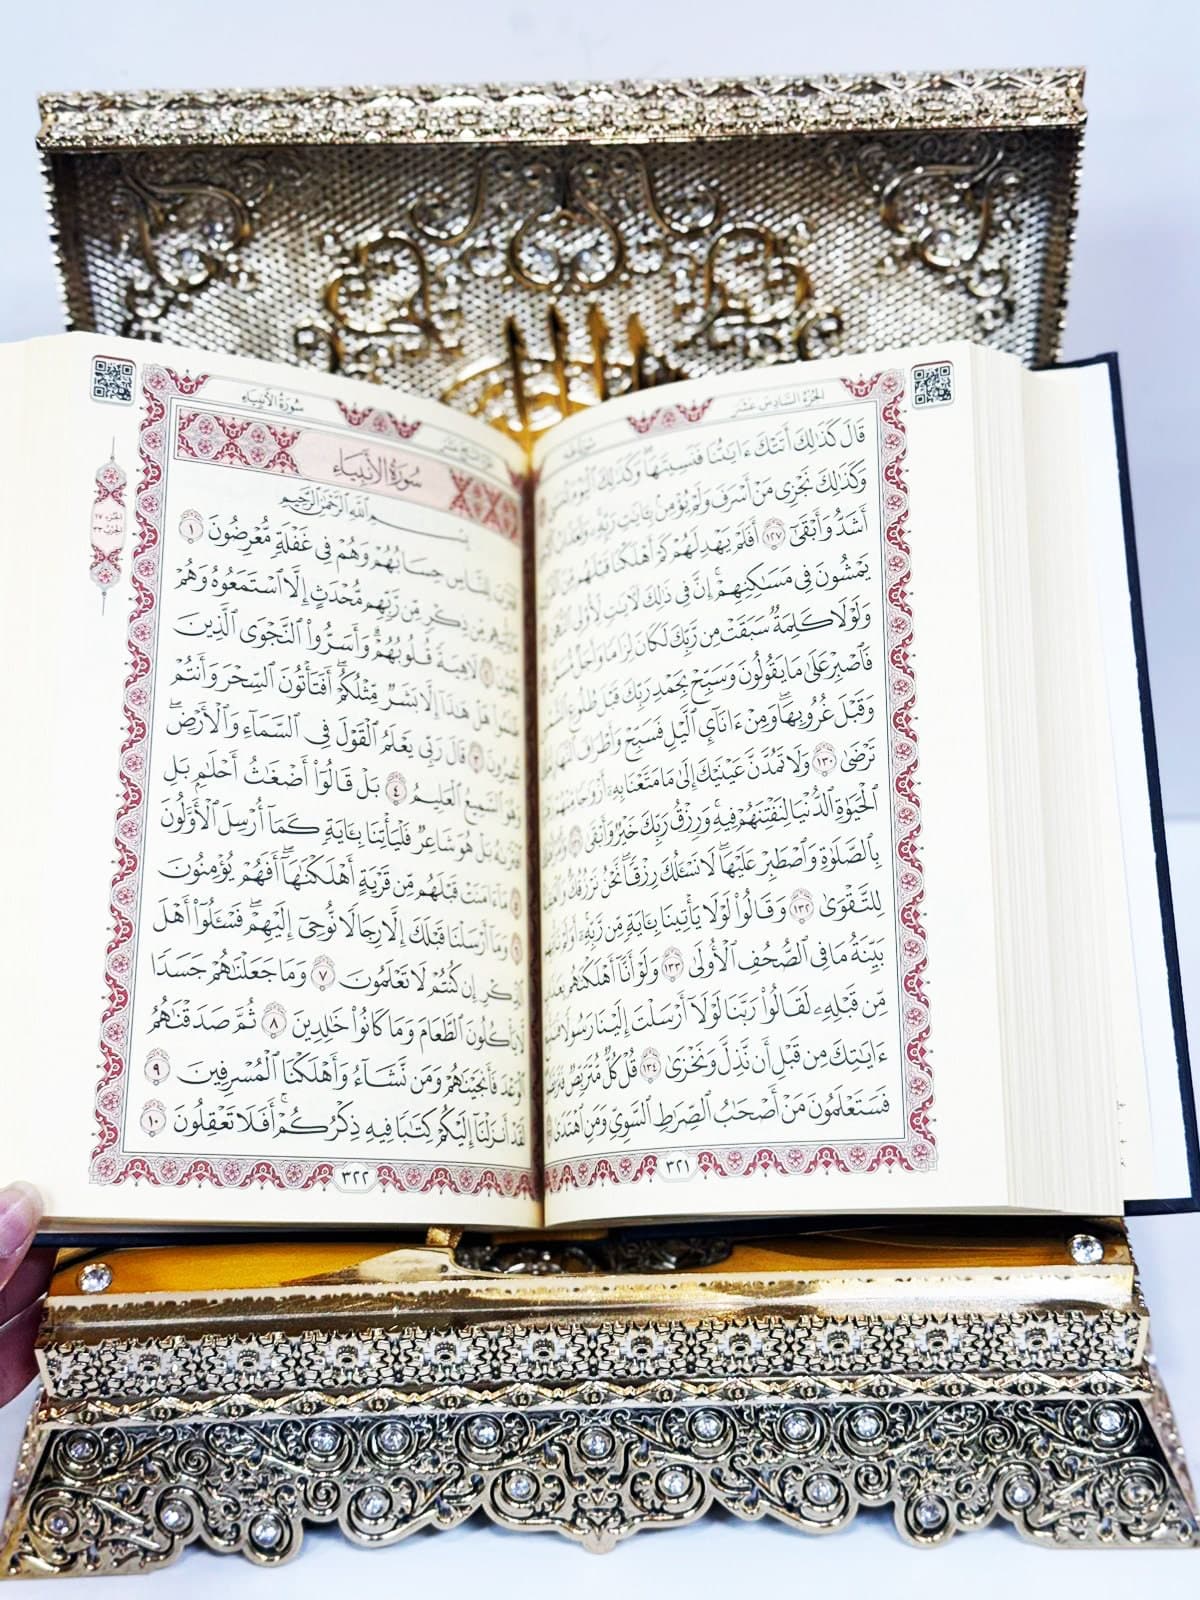 الجزء السادس عشر
سورة طه
قَالَ كَذَٰلِكَ أَتَتْكَ ءَايَـٰتُنَا فَنَسِيتَهَا ۖ وَكَذَٰلِكَ ٱلْيَوْمَ تُنسَىٰ
وَكَذَٰلِكَ نَجْزِى مَنْ أَسْرَفَ وَلَمْ يُؤْمِنۢ بِـَٔايَـٰتِ رَبِّهِۦ ۚ وَلَعَذَابُ
أَشَدُّ وَأَبْقَىٰٓ ١٢٧ أَفَلَمْ يَهْدِ لَهُمْ كَمْ أَهْلَكْنَا قَبْلَهُم مِّنَ
يَمْشُونَ فِى مَسَـٰكِنِهِمْ ۗ إِنَّ فِى ذَٰلِكَ لَـَٔايَـٰتٍ لِّأُو۟لِى
وَلَوْلَا كَلِمَةٌ سَبَقَتْ مِن رَّبِّكَ لَكَانَ لِزَامًا وَأَجَلٌ مُّسَمًّى
فَٱصْبِرْ عَلَىٰ مَا يَقُولُونَ وَسَبِّحْ بِحَمْدِ رَبِّكَ قَبْلَ طُلُوعِ ٱلشَّمْسِ
وَقَبْلَ غُرُوبِهَا ۖ وَمِنْ ءَانَآئِ ٱلَّيْلِ فَسَبِّحْ وَأَطْرَافَ ٱلنَّهَارِ
تَرْضَىٰ ١٣٠ وَلَا تَمُدَّنَّ عَيْنَيْكَ إِلَىٰ مَا مَتَّعْنَا بِهِۦٓ أَزْوَٰجًا مِّنْهُمْ
ٱلْحَيَوٰةِ ٱلدُّنْيَا لِنَفْتِنَهُمْ فِيهِ ۚ وَرِزْقُ رَبِّكَ خَيْرٌ وَأَبْقَىٰ
بِٱلصَّلَوٰةِ وَٱصْطَبِرْ عَلَيْهَا ۖ لَا نَسْـَٔلُكَ رِزْقًا ۖ نَّحْنُ نَرْزُقُكَ ۗ
لِلتَّقْوَىٰ ١٣٢ وَقَالُوا۟ لَوْلَا يَأْتِينَا بِـَٔايَةٍ مِّن رَّبِّهِۦٓ ۚ أَوَلَمْ تَأْتِهِم
بَيِّنَةُ مَا فِى ٱلصُّحُفِ ٱلْأُولَىٰ ١٣٣ وَلَوْ أَنَّآ أَهْلَكْنَـٰهُم بِعَذَابٍ
مِّن قَبْلِهِۦ لَقَالُوا۟ رَبَّنَا لَوْلَآ أَرْسَلْتَ إِلَيْنَا رَسُولًا
ءَايَـٰتِكَ مِن قَبْلِ أَن نَّذِلَّ وَنَخْزَىٰ ١٣٤ قُلْ كُلٌّ مُّتَرَبِّصٌ فَتَرَبَّصُوا۟
فَسَتَعْلَمُونَ مَنْ أَصْحَـٰبُ ٱلصِّرَٰطِ ٱلسَّوِىِّ وَمَنِ ٱهْتَدَىٰ
٣٢١
سورة الأنبياء
الجزء ١٧
الحزب ٣٣
سُورَةُ الأَنبِيَاءِ
بِسْمِ ٱللَّهِ ٱلرَّحْمَـٰنِ ٱلرَّحِيمِ
ٱقْتَرَبَ لِلنَّاسِ حِسَابُهُمْ وَهُمْ فِى غَفْلَةٍ مُّعْرِضُونَ ١
مَا يَأْتِيهِم مِّن ذِكْرٍ مِّن رَّبِّهِم مُّحْدَثٍ إِلَّا ٱسْتَمَعُوهُ وَهُمْ
يَلْعَبُونَ ٢ لَاهِيَةً قُلُوبُهُمْ ۗ وَأَسَرُّوا۟ ٱلنَّجْوَى ٱلَّذِينَ
ظَلَمُوا۟ هَلْ هَـٰذَآ إِلَّا بَشَرٌ مِّثْلُكُمْ ۖ أَفَتَأْتُونَ ٱلسِّحْرَ وَأَنتُمْ
تُبْصِرُونَ ٣ قَالَ رَبِّى يَعْلَمُ ٱلْقَوْلَ فِى ٱلسَّمَآءِ وَٱلْأَرْضِ ۖ
وَهُوَ ٱلسَّمِيعُ ٱلْعَلِيمُ ٤ بَلْ قَالُوٓا۟ أَضْغَـٰثُ أَحْلَـٰمٍۭ بَلِ
ٱفْتَرَىٰهُ بَلْ هُوَ شَاعِرٌ فَلْيَأْتِنَا بِـَٔايَةٍ كَمَآ أُرْسِلَ ٱلْأَوَّلُونَ
٥ مَآ ءَامَنَتْ قَبْلَهُم مِّن قَرْيَةٍ أَهْلَكْنَـٰهَآ ۖ أَفَهُمْ يُؤْمِنُونَ
٦ وَمَآ أَرْسَلْنَا قَبْلَكَ إِلَّا رِجَالًا نُّوحِىٓ إِلَيْهِمْ ۖ فَسْـَٔلُوٓا۟ أَهْلَ
ٱلذِّكْرِ إِن كُنتُمْ لَا تَعْلَمُونَ ٧ وَمَا جَعَلْنَـٰهُمْ جَسَدًا
لَّا يَأْكُلُونَ ٱلطَّعَامَ وَمَا كَانُوا۟ خَـٰلِدِينَ ٨ ثُمَّ صَدَقْنَـٰهُمُ
ٱلْوَعْدَ فَأَنجَيْنَـٰهُمْ وَمَن نَّشَآءُ وَأَهْلَكْنَا ٱلْمُسْرِفِينَ ٩
لَقَدْ أَنزَلْنَآ إِلَيْكُمْ كِتَـٰبًا فِيهِ ذِكْرُكُمْ ۖ أَفَلَا تَعْقِلُونَ ١٠
٣٢٢